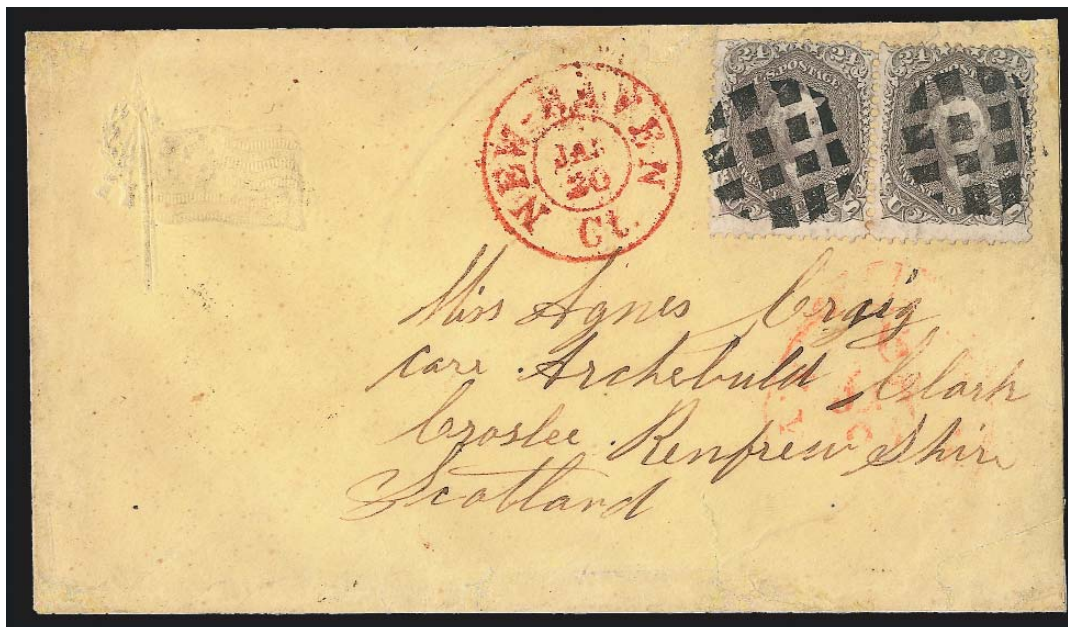 NEW-HAVEN
JAN
20
Ct.
24 24
U.S. POSTAGE
U S
24 24
U S
Miss Agnes Craig
care Archebuld Clark
Croslee Renfrew Shire
Scotland